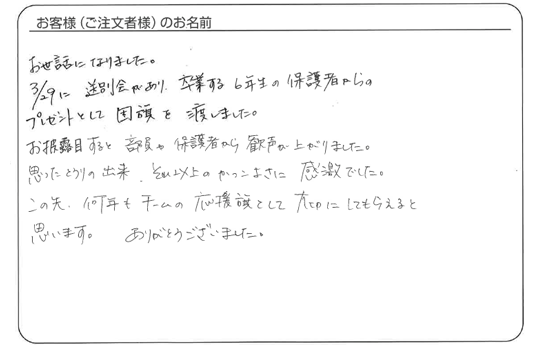 お客様（ご注文者様）のお名前
お世話になりました。
3/29に 送別会があり、卒業する6年生の保護者からの
プレゼントとして 団旗を 渡しました。
お披露目すると 部員や 保護者から 歓声が上がりました。
思ったとうりの出来、それ以上のかっこよさに 感激でした。
この先、何年も チームの 応援旗として 大切にしてもらえると
思います。 ありがとうございました。